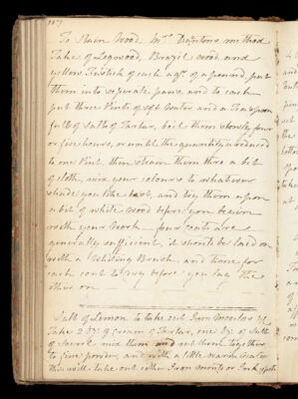 To Stain Wood Mrs method
Take of Logwood, Brazil wood and
yellow Fustick of each a qr. of a pound, put
them into separate pans and to each
put three Pints of soft water and a Teaspoon
full of Salts of Tartar, boil them slowly four
or five hours, or until the quantity is reduced
to one Pint, then strain them thro a bit
of cloth, mix your colours to whatever
shade you like best, and try them upon
a bit of white wood before you begin
with your Work four coats are
generally sufficient, it should be laid on
with a Brush, and time for
each coat to dry before you lay the
other on
Salt of Lemon to take out Iron
Take 2 of Cream of Tartar, one of Salt
of Sorrel mix them and rub them together
to fine powder, and with a little warm water
this will take out either Iron or Ink spots